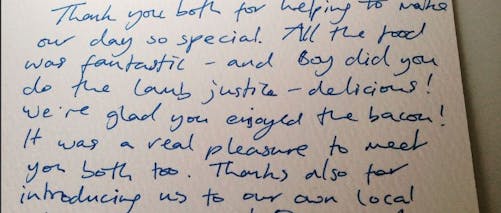 Thank you both for helping to make
our day so special. All the food
was fantastic - and Boy did you
do the lamb justice - delicious!
We're glad you enjoyed the bacon!
It was a real pleasure to meet
you both too. Thanks also for
introducing us to our own local